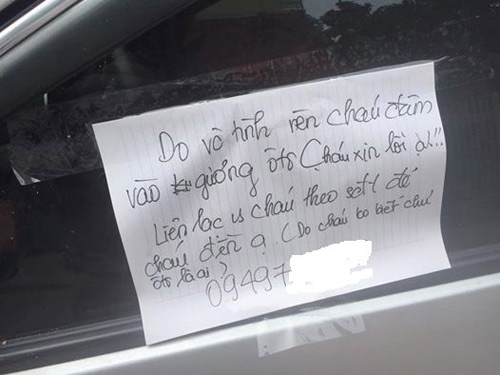 Do vô tình nên cháu đâm
vào gương ôtô (cháu xin lỗi ạ!!
Liên lạc vs cháu theo sđt để
cháu đền ạ. (Do cháu ko biết chủ
ôtô là ai)
09497